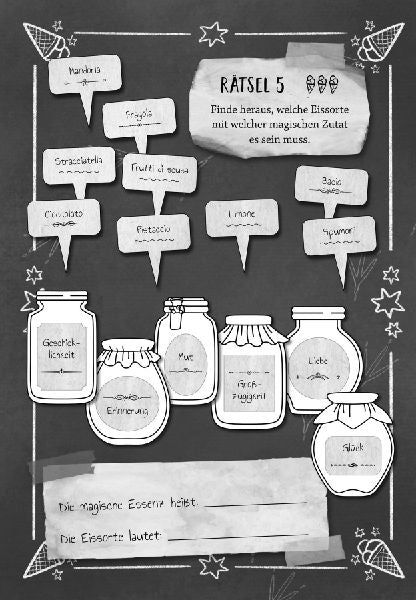 RÄTSEL 5
Finde heraus, welche Eissorte
mit welcher magischen Zutat
es sein muss.
Mandorla
Fragola
Stracciatella
Frutti di bosco
Bacio
Cioccolato
Pistaccio
Limone
Spumon
Geschick-
lichkeit
Erinnerung
Mut
Groß-
zügigkeit
Liebe
Glück
Die magische Essenz heißt:
Die Eissorte lautet: